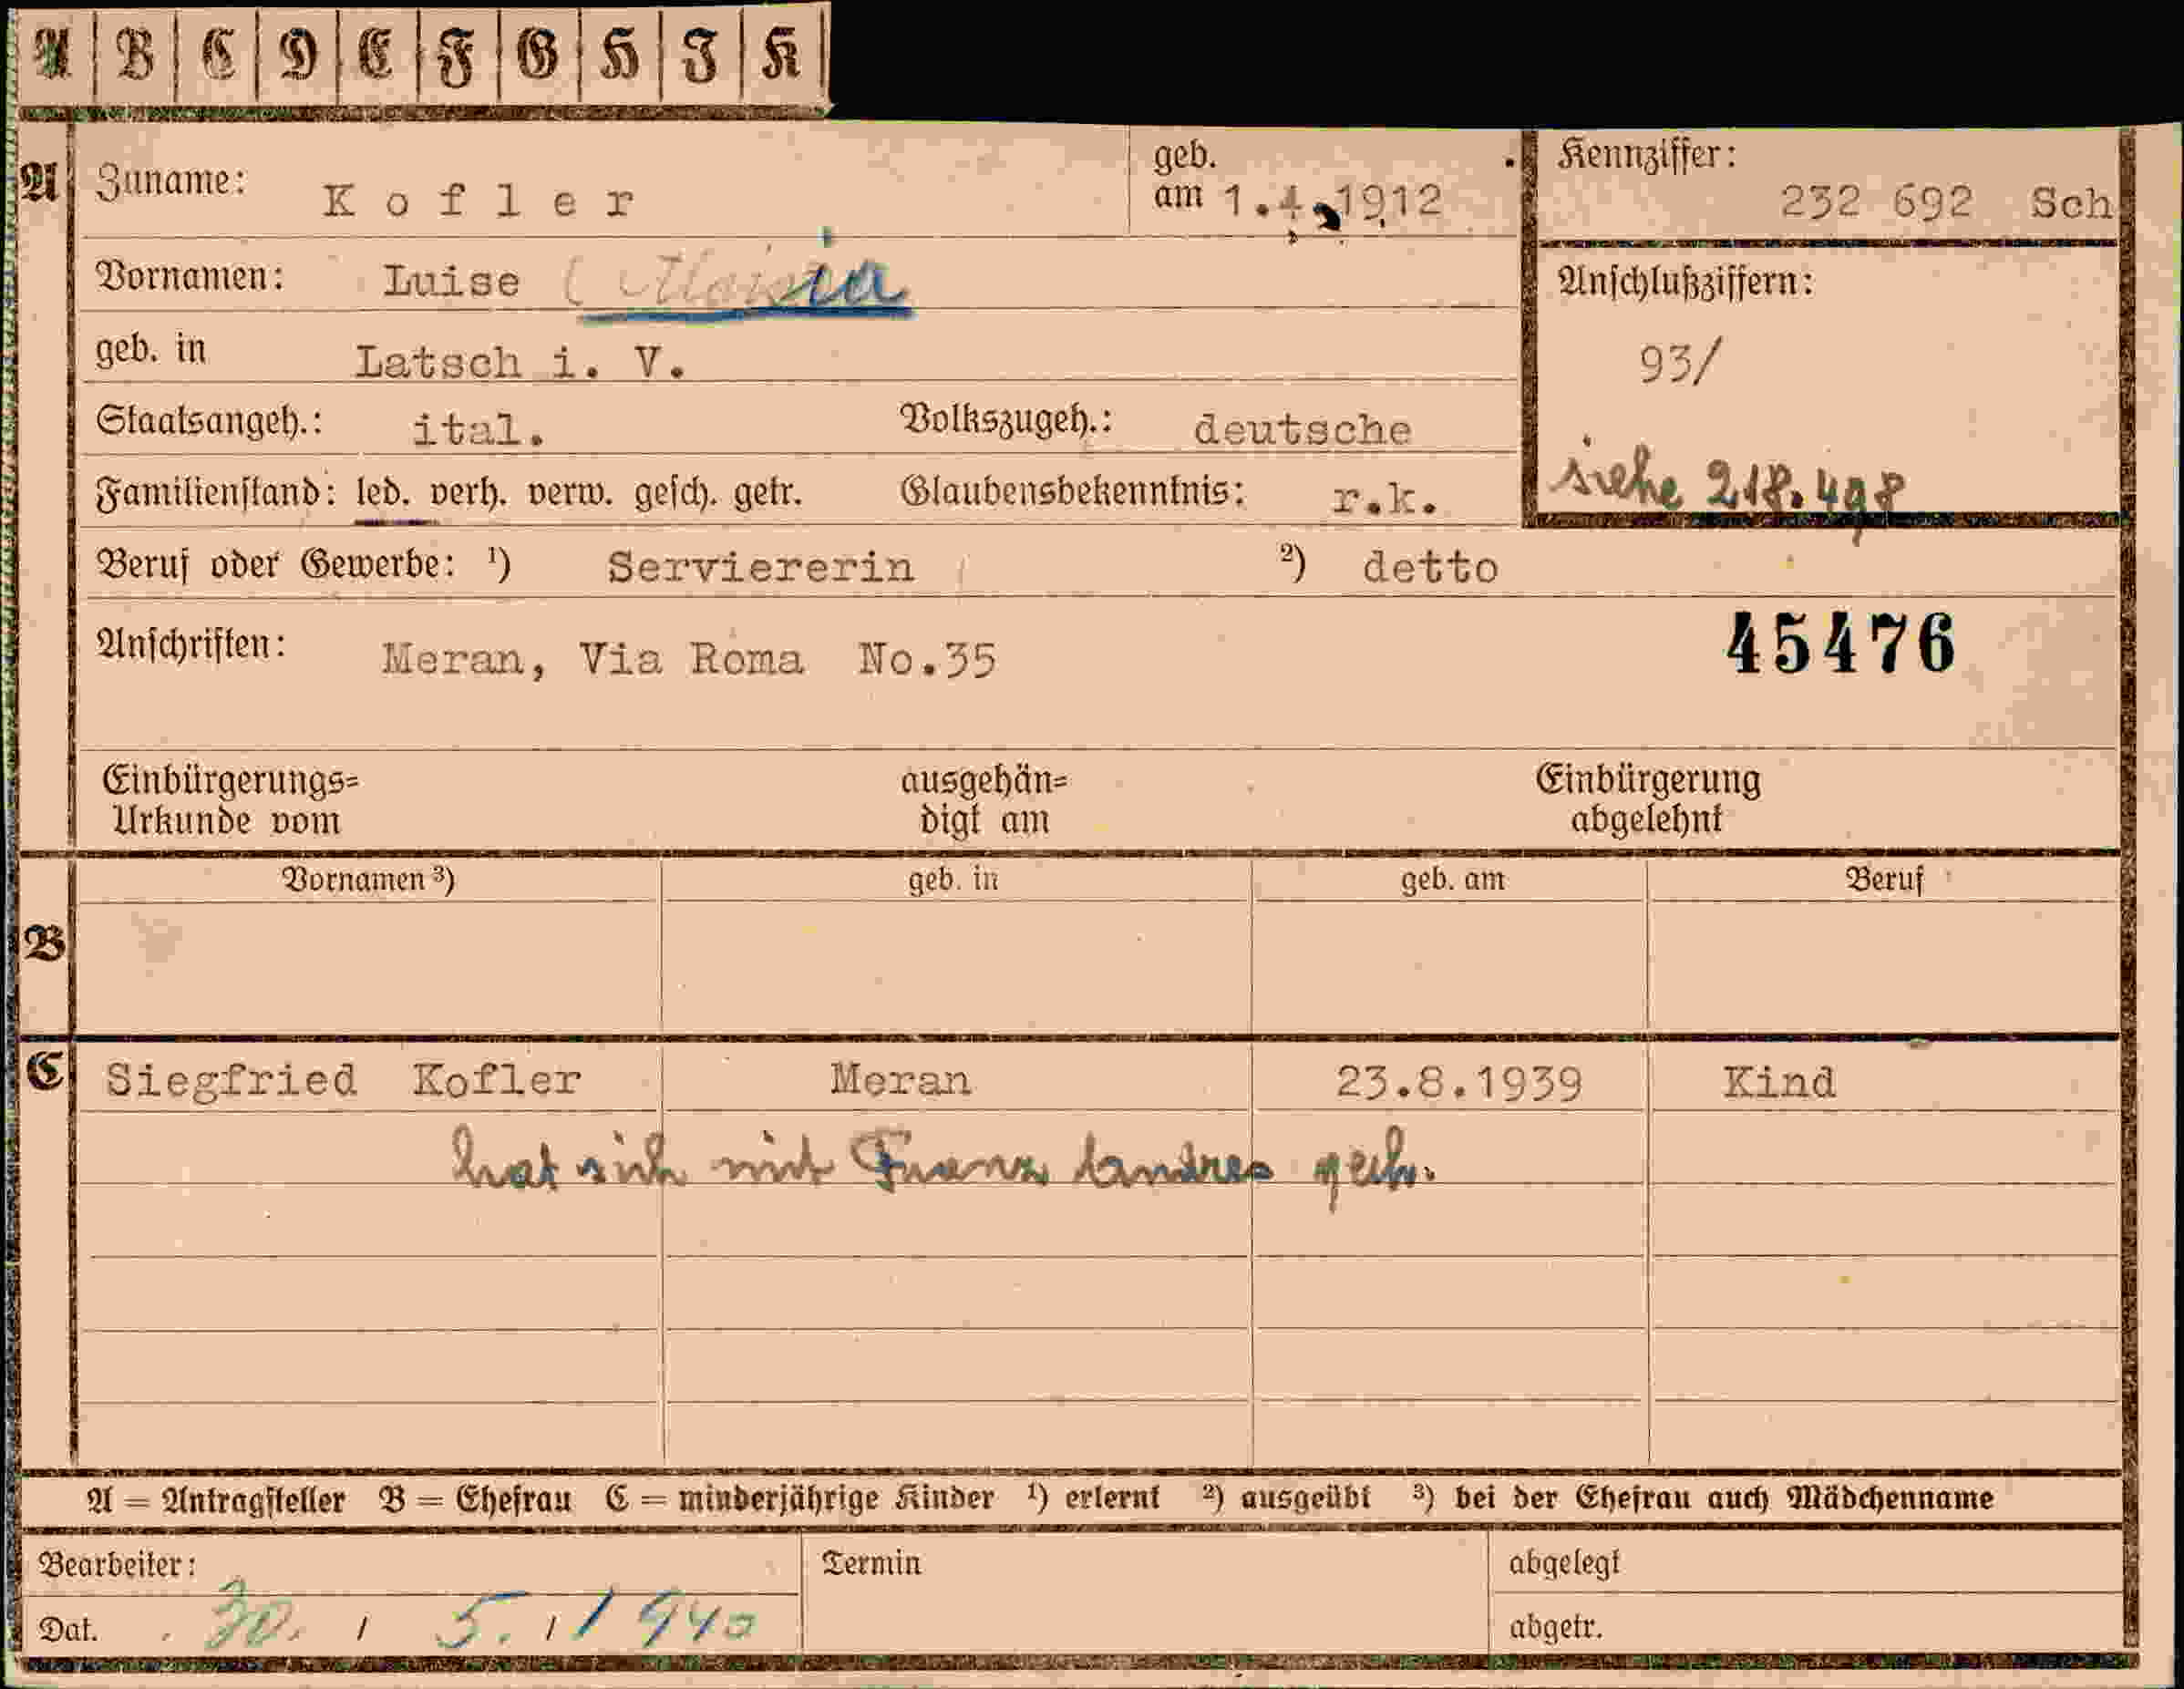 A B C D E F G H I K
A Zuname: Kofler geb. am 1.4.1912 Kennziffer: 232 692 Sch
Vornamen: Luise (Aloisia
Anschlußziffern:
geb. in Latsch i. V.
93/
Staatsangeh.: ital. Volkszugeh.: deutsche
siehe 218.498
Familienstand: led. verh. verw. gesch. getr. Glaubensbekenntnis: r.k.
Beruf oder Gewerbe: ¹) Serviererin ²) detto
45476
Anschriften: Meran, Via Roma No.35
Einbürgerungs= ausgehän= Einbürgerung
Urkunde vom digt am abgelehnt
Vornamen ³) geb. in geb. am Beruf
B
C Siegfried Kofler Meran 23.8.1939 Kind
hat sich mit Franz
A = Antragsteller B = Ehefrau C = minderjährige Kinder ¹) erlernt ²) ausgeübt ³) bei der Ehefrau auch Mädchenname
Bearbeiter: Termin abgelegt
Dat. 30. / 5. / 1940 abgetr.